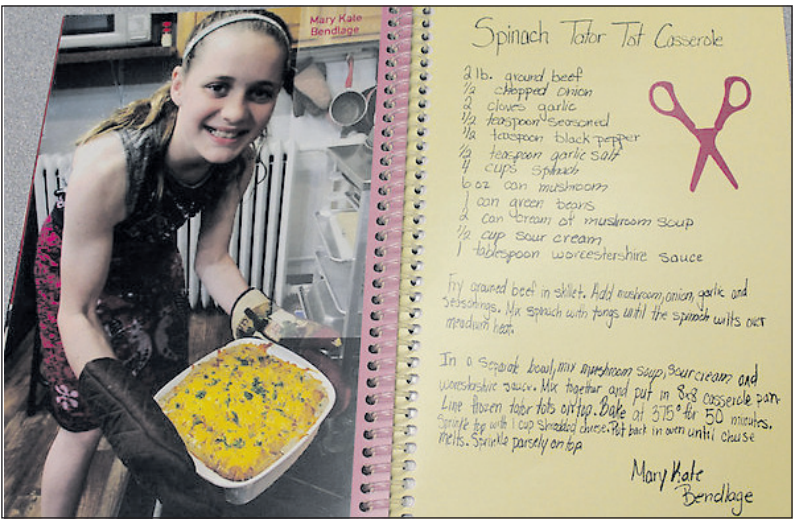 Mary Kate
Bendlage
Spinach Tator Tot Casserole
2 lb. ground beef
1/2 chopped onion
2 cloves garlic
1/2 teaspoon seasoned
1/2 teaspoon black pepper
1/2 teaspoon garlic salt
4 cups spinach
6 oz can mushroom
1 can green beans
2 can cream of mushroom soup
1/2 cup sour cream
1 tablespoon worcestershire sauce
Fry ground beef in skillet. Add mushroom, onion, garlic and
seasonings. Mix spinach with tongs until the spinach wilts over
meadium heat.
In a separate bowl, mix mushroom soup, sour cream and
worestershire sauce. Mix together and put in 8x8 casserole pan.
Line frozen tator tots on top. Bake at 375° for 50 minutes.
Sprinkle top with 1 cup shredded cheese. Put back in oven until chuse
melts. Sprinkle parsely on top
Mary Kate
Bendlage